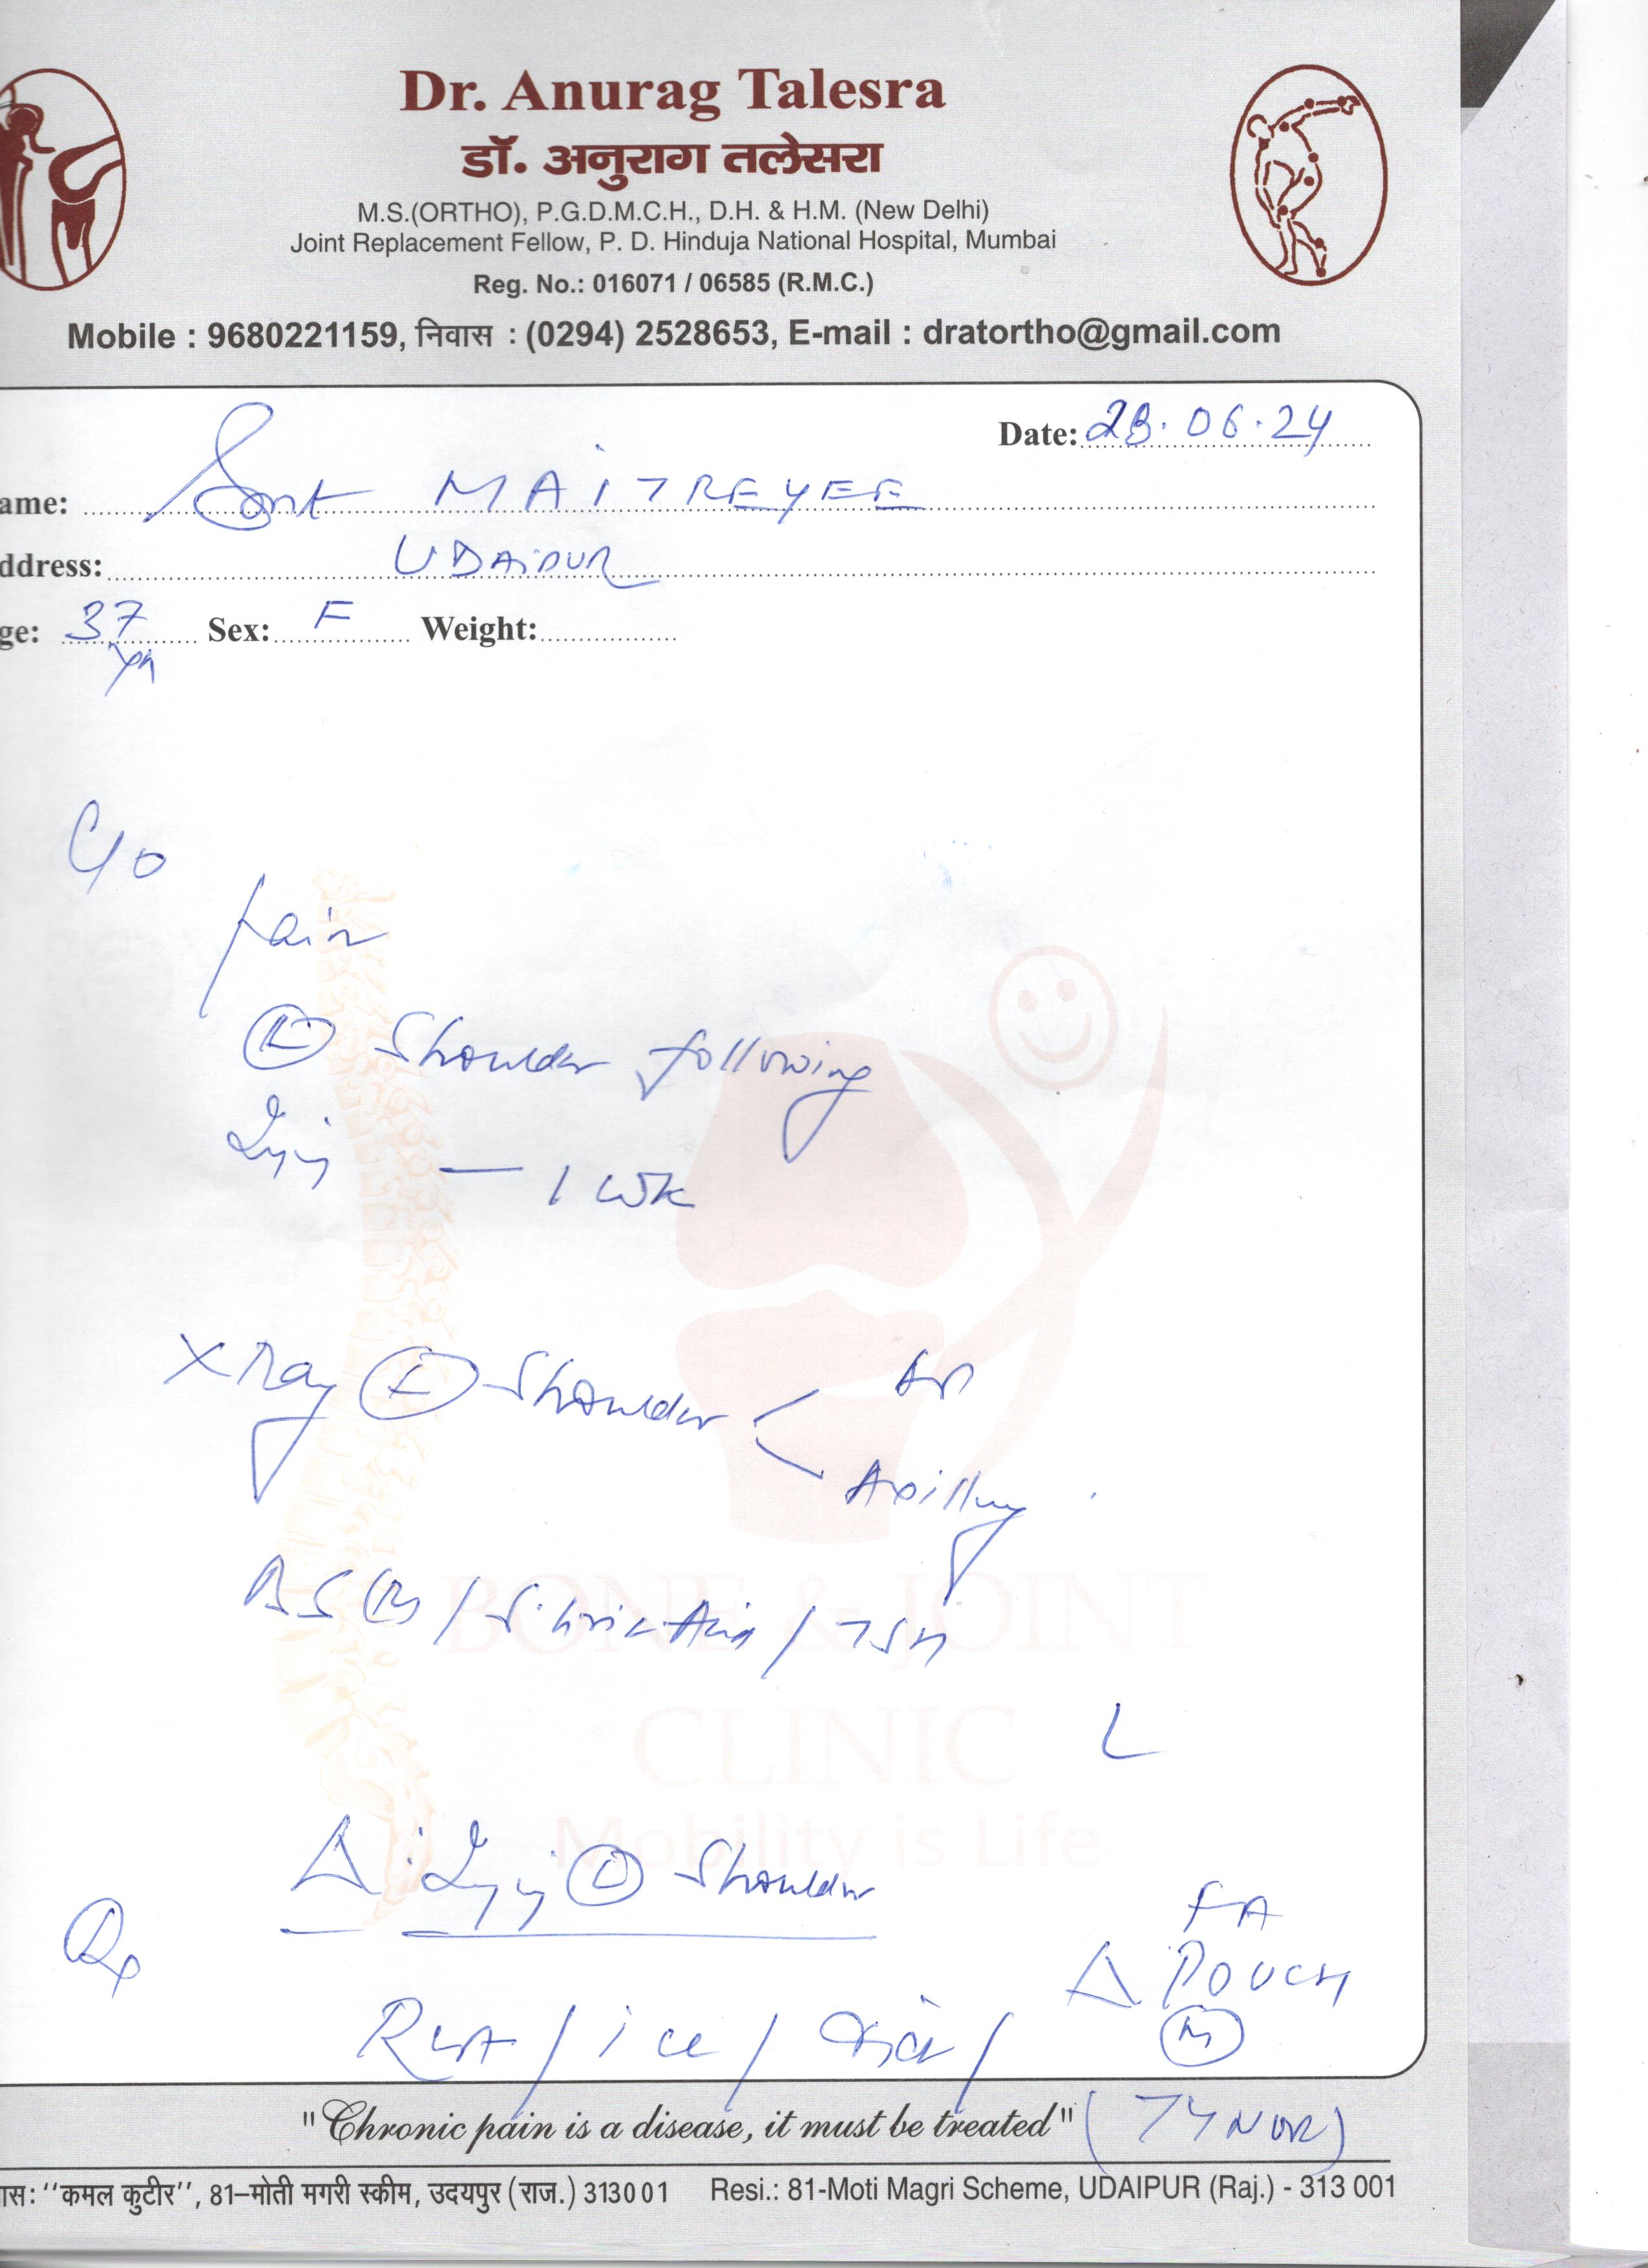 Dr. Anurag Talesra
डॉ. अनुराग तलेसरा
M.S.(ORTHO), P.G.D.M.C.H., D.H. & H.M. (New Delhi)
Joint Replacement Fellow, P. D. Hinduja National Hospital, Mumbai
Reg. No.: 016071 / 06585 (R.M.C.)
Mobile : 9680221159, निवास : (0294) 2528653, E-mail : dratortho@gmail.com
Date: 28.06.24
ame: Smt MAITREYEE
ddress: UDAIPUR
ge: 37 Sex: F Weight:
C/o
pain
(L) Shoulder following
Injury — 1 wk
X Ray (L) Shoulder < AP
Axillary
BS (R) / S. Uric Acid / TSH
BONE & JOINT
CLINIC
L
Mobility is Life
Δ : Injury (L) Shoulder
Rx
FA
Δ POUCH
(M)
Rest / ice /
"Chronic pain is a disease, it must be treated" (TYNOR)
ास: ''कमल कुटीर'', 81–मोती मगरी स्कीम, उदयपुर (राज.) 313001 Resi.: 81-Moti Magri Scheme, UDAIPUR (Raj.) - 313 001